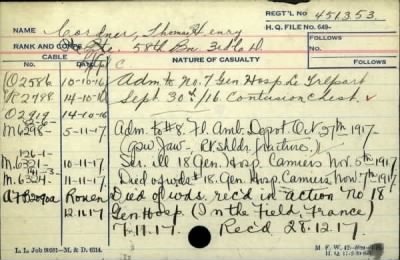 REGT'L NO 451353
NAME Cordner, Thomas Henry H. Q. FILE NO. 649-
RANK AND CORPS Pte. 58th Bn. 3rd C. D. FOLLOWS
CABLE NATURE OF CASUALTY
NO. DATE FOLLOWS
O2586 10-10-16 Adm to No. 7 Gen Hosp. Le Treport
R2798 14-10-16 Sept 30th/16. Contusion Chest.
14-10-16
M6298 5-11-17 Adm. to #8. Fl. Amb. Depot Oct 27th 1917.
(GSW Jaw - Rt Shldr fracture.)
126-1-
M.6321 10-11-17. Ser. ill 18 Gen. Hosp. Camiers Nov. 5th 1917
141-3-
M.6324 11-11-17. Died of wds #18. Gen. Hosp. Camiers Nov. 7th 1917
AFB2090a Rouen Died of wds. rec'd in action No 18
12.11.17 Gen Hosp. (In the field, France)
7.11.17. Rec'd 28.12.17.
L. L. Job 90981—M. & D. 6514. M. F. W.